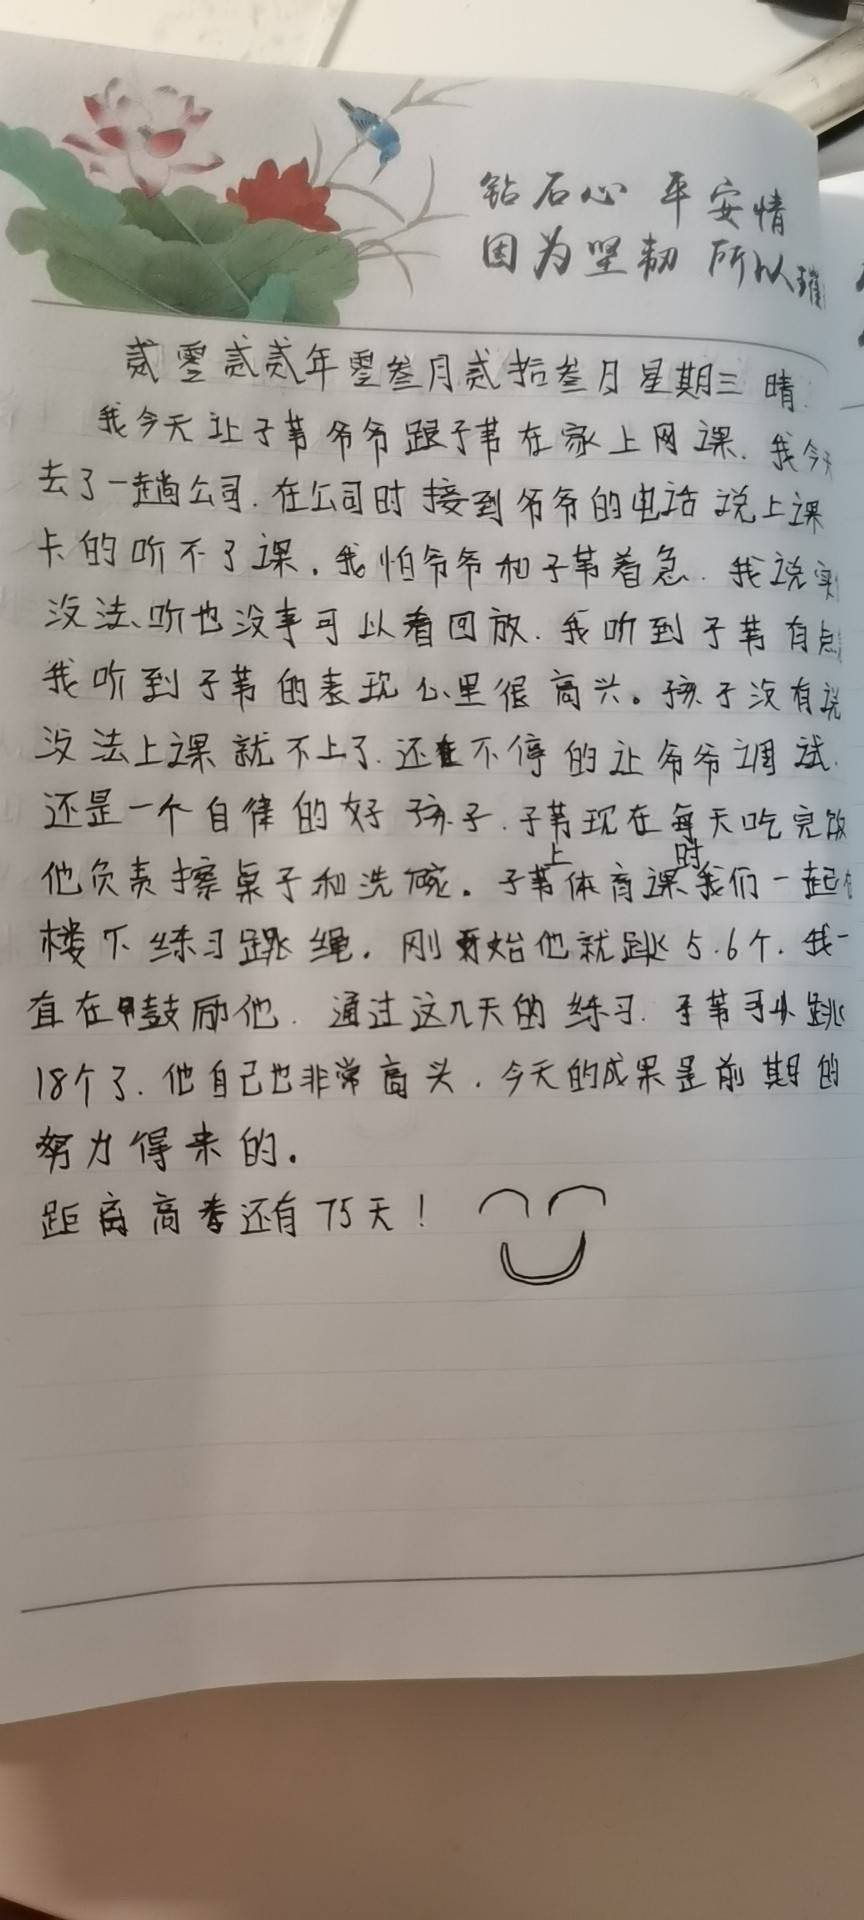 钻石心 平安情
因为坚韧 所以璀
贰零贰贰年零叁月贰拾叁日星期三 晴.
我今天让子苇爷爷跟子苇在家上网课.我今天
去了一趟公司.在公司时接到爷爷的电话说上课
卡的听不了课.我怕爷爷和子苇着急.我说实
没法、听也没事可以看回放.我听到子苇有点
我听到子苇的表现心里很高兴。孩子没有说
没法上课就不上了.还在不停的让爷爷调试.
还是一个自律的好孩子.子苇现在每天吃完饭
他负责擦桌子和洗碗。子苇上体育课时我们一起在
楼下练习跳绳.刚开始他就跳5.6个.我一
直在鼓励他.通过这几天的练习.子苇可以跳
18个了.他自己也非常高兴.今天的成果是前期的
努力得来的。
距离高考还有75天！